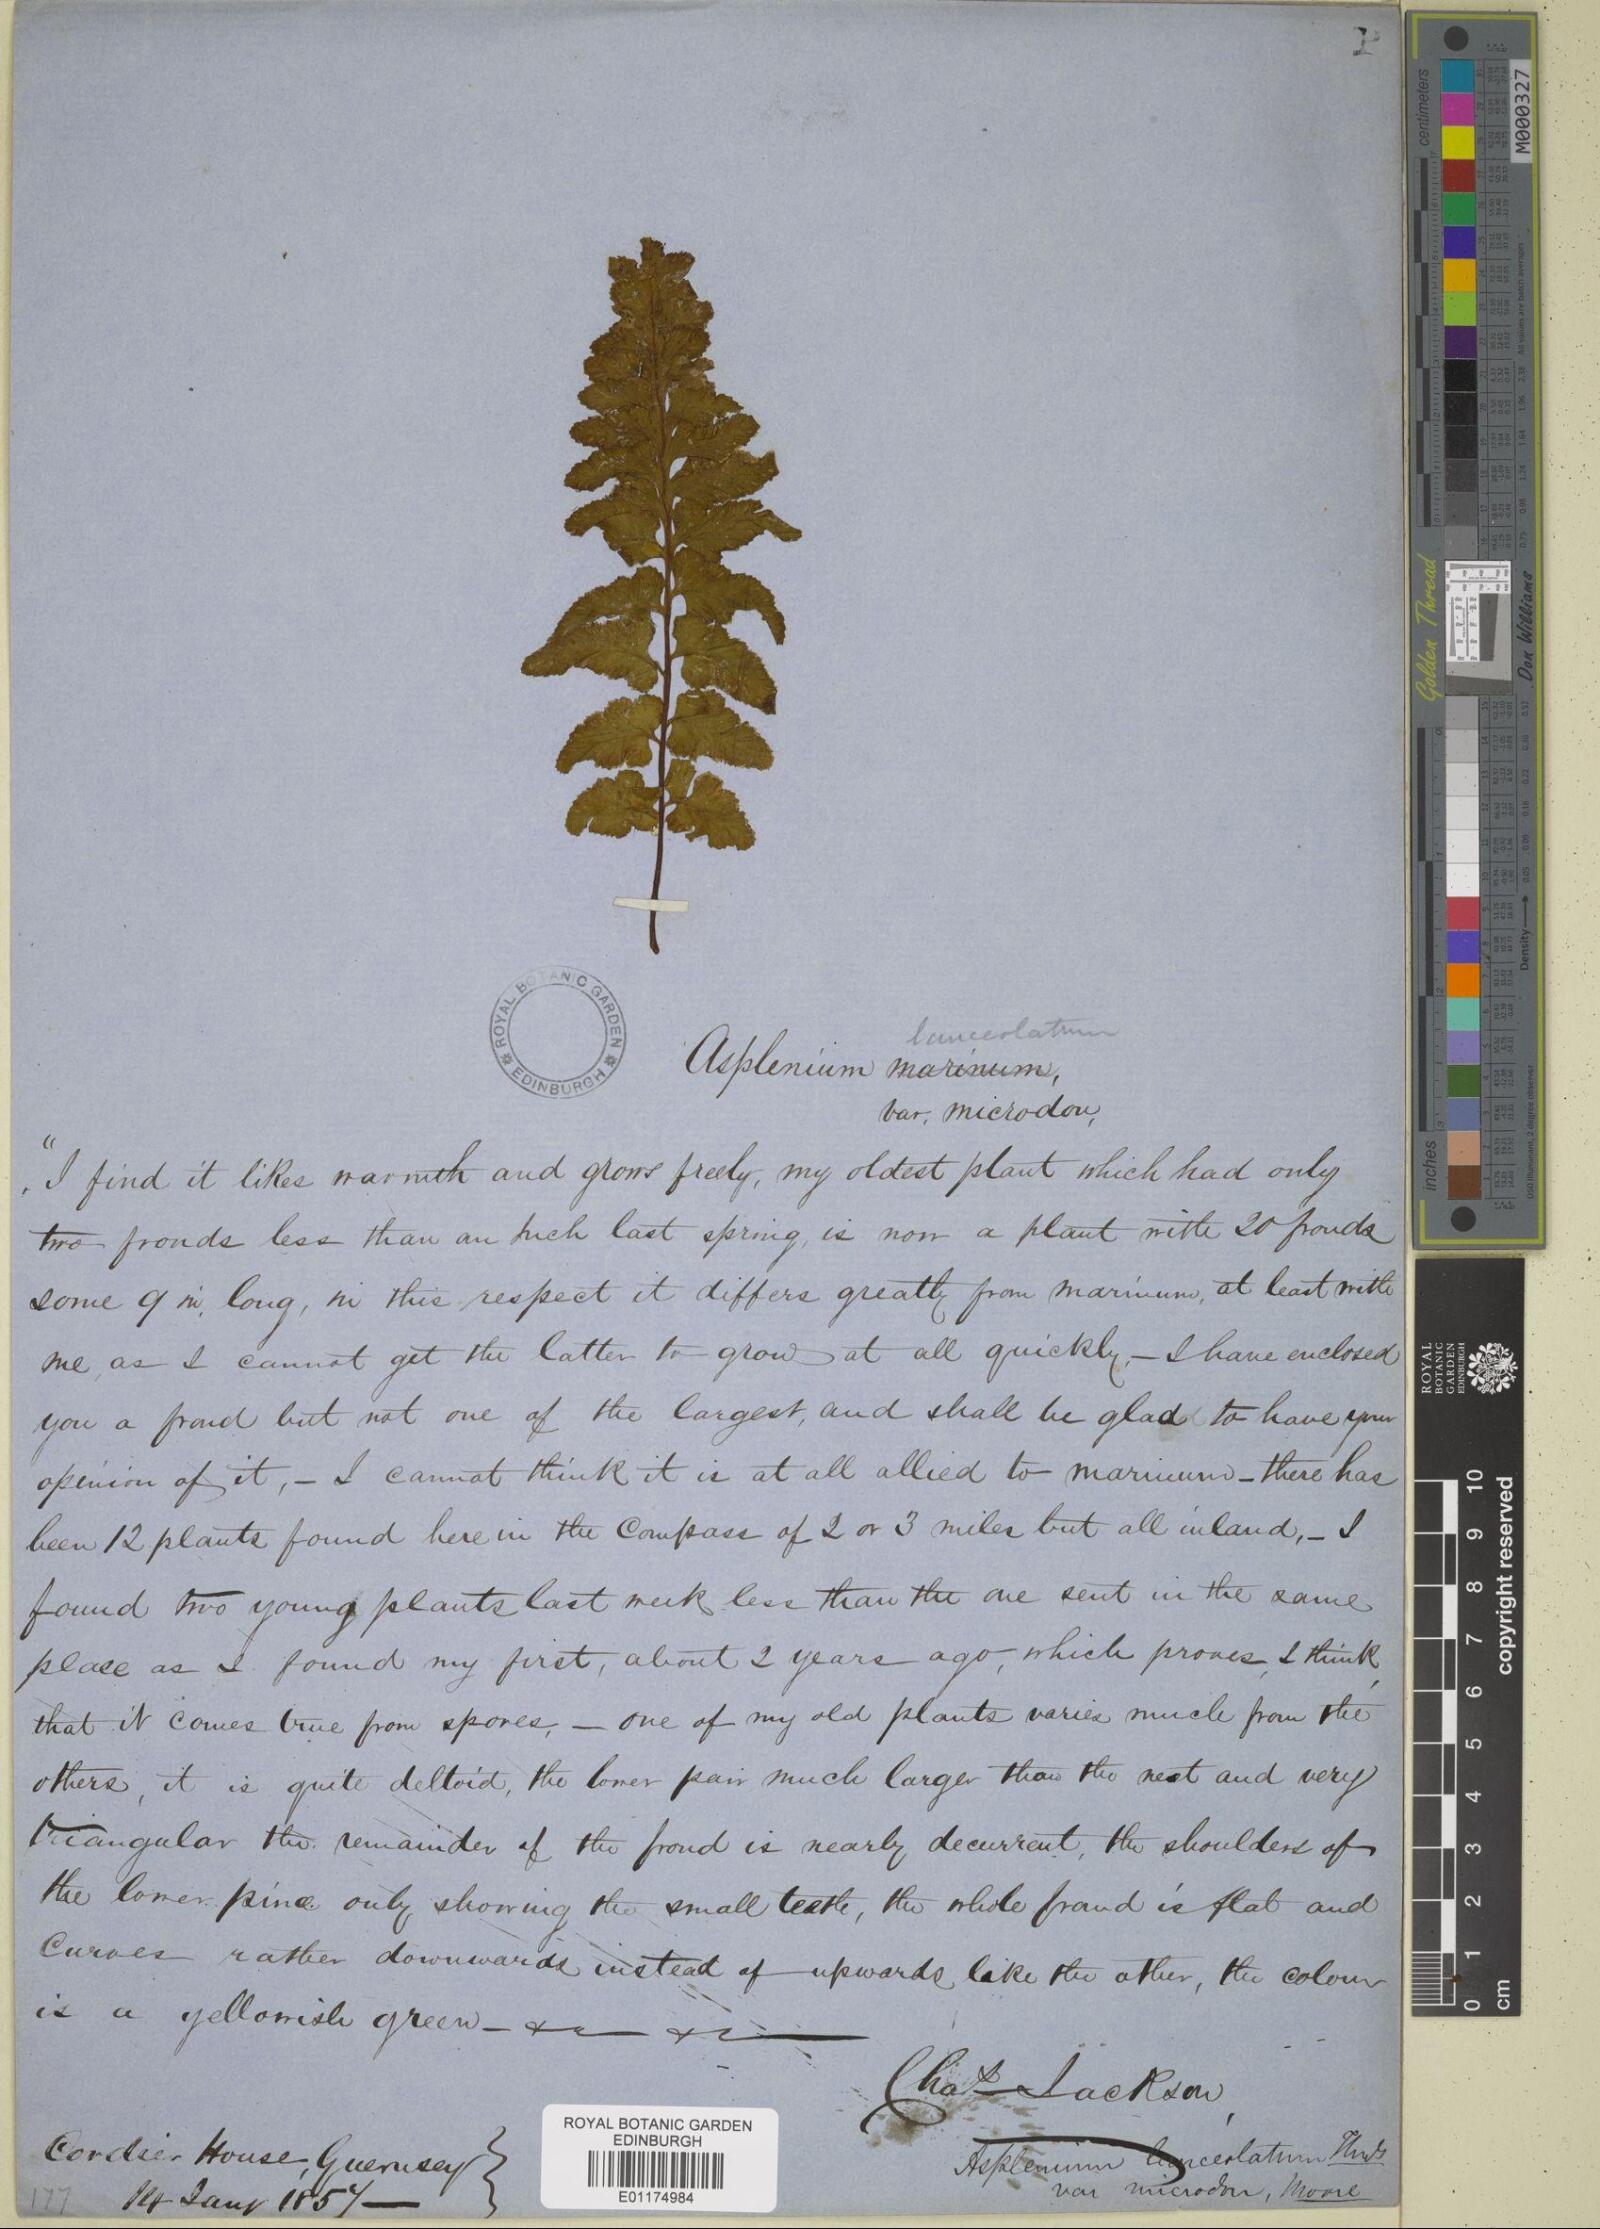 lanceolatum
Asplenium marinum,
var. microdon,
"I find it likes warmth and grows freely, my oldest plant which had only
two fronds less than an inch last spring, is now a plant with 20 fronds
some 9 in. long, in this respect it differs greatly from marinum, at least with
me, as I cannot get the latter to grow at all quickly, – I have enclosed
you a frond but not one of the largest, and shall be glad to have your
opinion of it, – I cannot think it is at all allied to marinum – there has
been 12 plants found here in the compass of 2 or 3 miles but all inland, – I
found two young plants last week less than the one sent in the same
place as I found my first, about 2 years ago, which proves, I think,
that it comes true from spores, – one of my old plants varies much from the
others, it is quite deltoid, the lower pair much larger than the next and very
triangular the remainder of the frond is nearly decurrent, the shoulders of
the lower pinæ only showing the small teeth, the whole frond is flat and
curves rather downwards instead of upwards like the other, the colour
is a yellowish green – &c &c
Chas Jackson,
Cordier House, Guernsey
14 Jany 1857 –
Asplenium lanceolatum Huds
var microdon, Moore
177
ROYAL BOTANIC GARDEN EDINBURGH
ROYAL BOTANIC GARDEN
EDINBURGH
E01174984
centimeters
M000327
Golden Thread
Don Williams
All values are batch averages
Density
inches
D50 Illuminant, 2 degree observer
ROYAL
BOTANIC
GARDEN
EDINBURGH
copyright reserved
0 1 2 3 4 5 6 7 8 9 10
cm